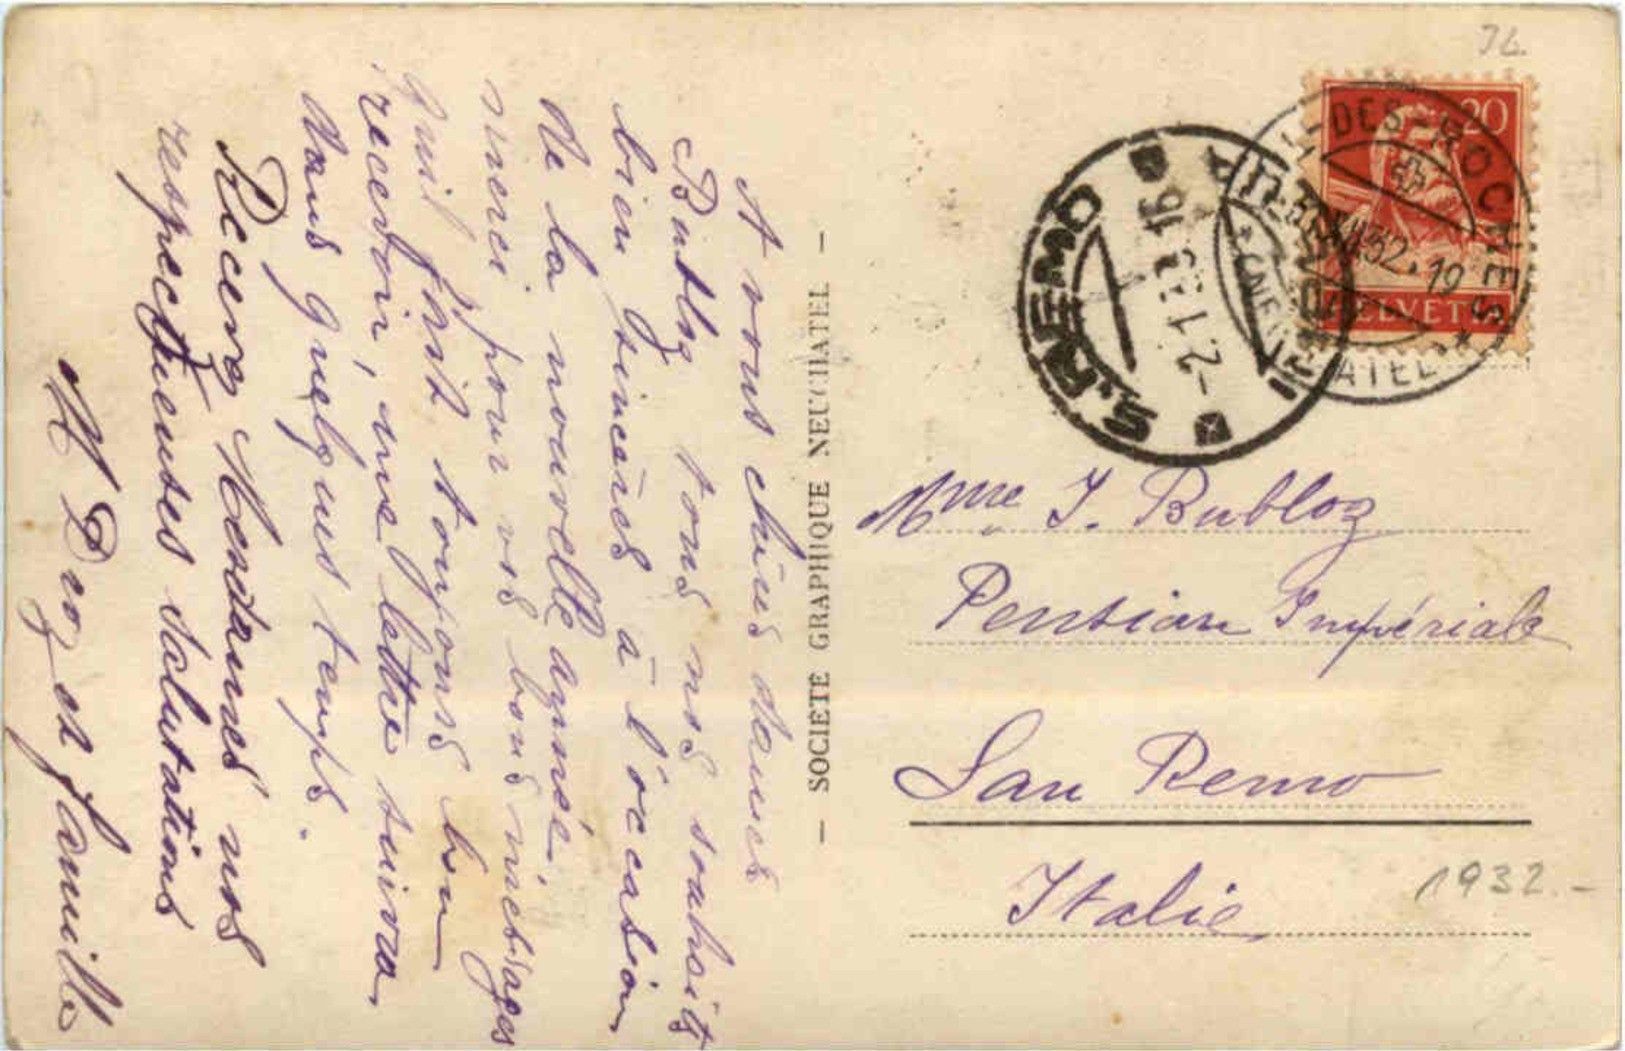 A vous chères dames
Bubloz tous nos souhaits
bien sincères à l'occasion
de la nouvelle année.
merci pour vos bons messages
qui font toujours bon
recevoir, une lettre suivra
dans quelques temps.
Recevez Mesdames nos
respectueuses salutations
et famille
– SOCIETE GRAPHIQUE NEUCHATEL –
20
HELVETIA
DES-ROCHES
32.19
S. REMO
-2.1.33 16
Mme J. Bubloz
Pension Impériale
San Remo
Italie
1932.-